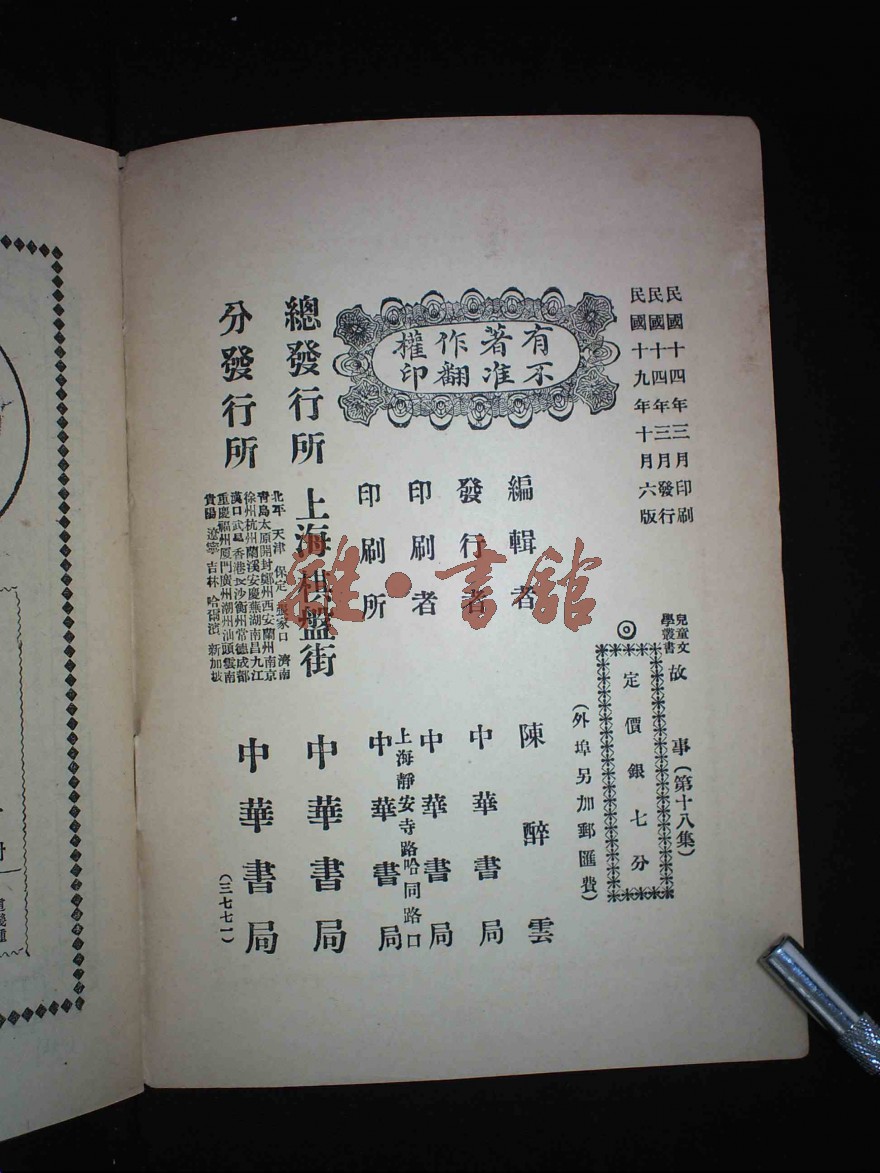 民國十四年三月印刷
民國十四年三月發行
民國十九年十月六版
兒童文
學叢書
故事(第十八集)
◎
定價銀七分
(外埠另加郵匯費)
有著作權
不准翻印
編輯者 陳醉雲
發行者 中華書局
印刷者 中華書局
上海靜安寺路哈同路口
印刷所 中華書局
總發行所 上海棋盤街 中華書局
分發行所
北平 天津 保定 張家口 濟南
青島太原開封鄭州西安蘭州南京
徐州杭州蘭溪安慶蕪湖南昌九江
漢口武昌香港長沙衡州常德成都
重慶福州厦門廣州潮州汕頭雲南
貴陽 遼寧 吉林 哈爾濱 新加坡
中華書局
(三七七一)
雜·書館